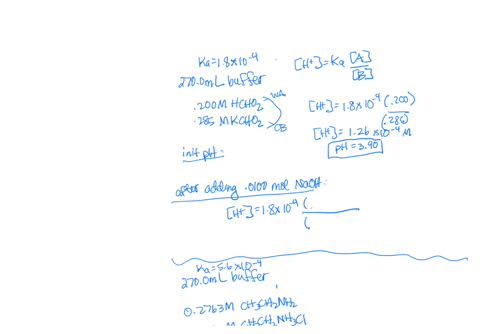 Ka=1.8x10⁻⁴
270.0mL buffer
.200M HCHO₂ WA
.285 M KCHO₂ CB
init pH:
[H⁺]=Ka [A]/[B]
[H⁺]=1.8x10⁻⁴ (.200)/(.285)
[H⁺]=1.26x10⁻⁴ M
pH=3.90
after adding .0100 mol NaOH:
[H⁺]=1.8x10⁻⁴ (
(
Ka=5.6x10⁻⁴
270.0mL buffer
0.2763M CH₃CH₂NH₂
M CH₃CH₂NH₃Cl